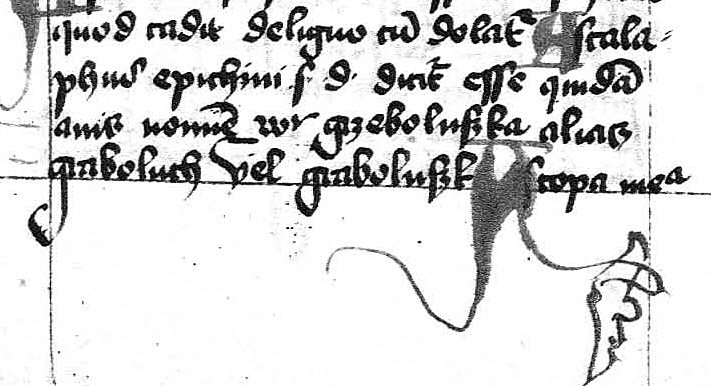 quod cadit de ligno cū dolat᷑ Ascala-
phus epichini f d· dicit᷑ esse quidā
auis nomīe wr grzebolufzka alias
graboluch Vel grabolufzk Astopa mea